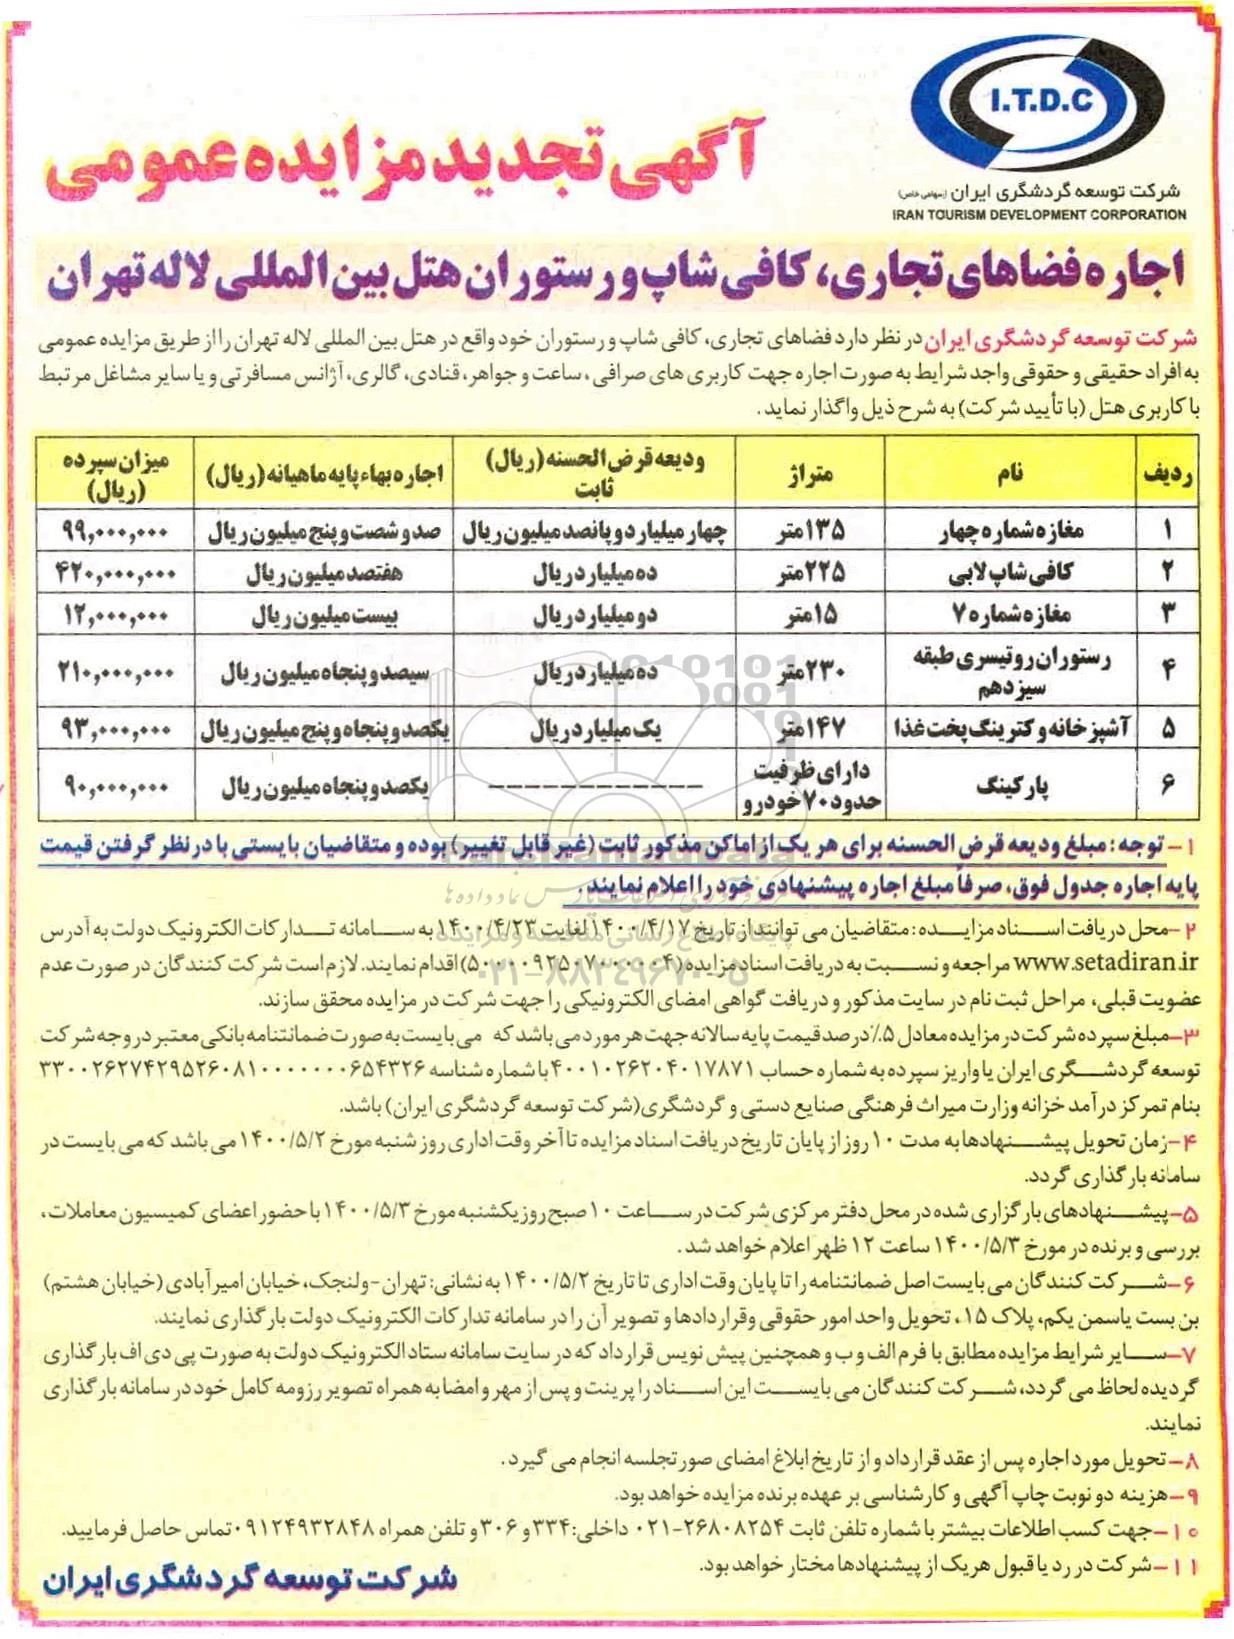 I.T.D.C
شرکت توسعه گردشگری ایران (سهامی خاص)
IRAN TOURISM DEVELOPMENT CORPORATION
آگهی تجدید مزایده عمومی
اجاره فضاهای تجاری، کافی شاپ و رستوران هتل بین المللی لاله تهران
شرکت توسعه گردشگری ایران در نظر دارد فضاهای تجاری، کافی شاپ و رستوران خود واقع در هتل بین المللی لاله تهران را از طریق مزایده عمومی
به افراد حقیقی و حقوقی واجد شرایط به صورت اجاره جهت کاربری های صرافی، ساعت و جواهر، قنادی، گالری، آژانس مسافرتی و یا سایر مشاغل مرتبط
با کاربری هتل (با تأیید شرکت) به شرح ذیل واگذار نماید.
ردیف نام متراژ ودیعه قرض الحسنه (ریال) ثابت اجاره بهاء پایه ماهیانه (ریال) میزان سپرده (ریال)
۱ مغازه شماره چهار ۱۳۵ متر چهار میلیارد و پانصد میلیون ریال صد و شصت و پنج میلیون ریال ۹۹,۰۰۰,۰۰۰
۲ کافی شاپ لابی ۲۲۵ متر ده میلیارد ریال هفتصد میلیون ریال ۴۲۰,۰۰۰,۰۰۰
۳ مغازه شماره ۷ ۱۵ متر دو میلیارد ریال بیست میلیون ریال ۱۲,۰۰۰,۰۰۰
۴ رستوران روتیسری طبقه سیزدهم ۲۳۰ متر ده میلیارد ریال سیصد و پنجاه میلیون ریال ۲۱۰,۰۰۰,۰۰۰
۵ آشپزخانه و کترینگ پخت غذا ۱۴۷ متر یک میلیارد ریال یکصد و پنجاه و پنج میلیون ریال ۹۳,۰۰۰,۰۰۰
۶ پارکینگ دارای ظرفیت حدود ۷۰ خودرو ------------ یکصد و پنجاه میلیون ریال ۹۰,۰۰۰,۰۰۰
۱- توجه: مبلغ ودیعه قرض الحسنه برای هر یک از اماکن مذکور ثابت (غیر قابل تغییر) بوده و متقاضیان بایستی با در نظر گرفتن قیمت
پایه اجاره جدول فوق، صرفاً مبلغ اجاره پیشنهادی خود را اعلام نمایند.
۲- محل دریافت اسناد مزایده: متقاضیان می توانند از تاریخ ۱۴۰۰/۴/۱۷ لغایت ۱۴۰۰/۴/۲۳ به سامانه تدارکات الکترونیک دولت به آدرس
www.setadiran.ir مراجعه و نسبت به دریافت اسناد مزایده (۵۰۰۰۰۹۲۵۰۷۰۰۰۰۰۴) اقدام نمایند. لازم است شرکت کنندگان در صورت عدم
عضویت قبلی، مراحل ثبت نام در سایت مذکور و دریافت گواهی امضای الکترونیکی را جهت شرکت در مزایده محقق سازند.
۳- مبلغ سپرده شرکت در مزایده معادل ۵٪ درصد قیمت پایه سالانه جهت هر مورد می باشد که می بایست به صورت ضمانتنامه بانکی معتبر در وجه شرکت
توسعه گردشگری ایران یا واریز سپرده به شماره حساب ۴۰۰۱۰۲۶۲۰۴۰۱۷۸۷۱ با شماره شناسه ۳۳۰۰۲۶۲۷۴۲۹۵۲۶۰۸۱۰۰۰۰۰۰۰۰۶۵۴۳۲۶
بنام تمرکز درآمد خزانه وزارت میراث فرهنگی صنایع دستی و گردشگری (شرکت توسعه گردشگری ایران) باشد.
۴- زمان تحویل پیشنهادها به مدت ۱۰ روز از پایان تاریخ دریافت اسناد مزایده تا آخر وقت اداری روز شنبه مورخ ۱۴۰۰/۵/۲ می باشد که می بایست در
سامانه بارگذاری گردد.
۵- پیشنهادهای بارگزاری شده در محل دفتر مرکزی شرکت در ساعت ۱۰ صبح روز یکشنبه مورخ ۱۴۰۰/۵/۳ با حضور اعضای کمیسیون معاملات،
بررسی و برنده در مورخ ۱۴۰۰/۵/۳ ساعت ۱۲ ظهر اعلام خواهد شد.
۶- شرکت کنندگان می بایست اصل ضمانتنامه را تا پایان وقت اداری تا تاریخ ۱۴۰۰/۵/۲ به نشانی: تهران- ولنجک، خیابان امیرآبادی (خیابان هشتم)
بن بست یاسمن یکم، پلاک ۱۵، تحویل واحد امور حقوقی و قراردادها و تصویر آن را در سامانه تدارکات الکترونیک دولت بارگذاری نمایند.
۷- سایر شرایط مزایده مطابق با فرم الف و ب و همچنین پیش نویس قرارداد که در سایت سامانه ستاد الکترونیک دولت به صورت پی دی اف بارگذاری
گردیده لحاظ می گردد، شرکت کنندگان می بایست این اسناد را پرینت و پس از مهر و امضا به همراه تصویر رزومه کامل خود در سامانه بارگذاری
نمایند.
۸- تحویل مورد اجاره پس از عقد قرارداد و از تاریخ ابلاغ امضای صورتجلسه انجام می گیرد.
۹- هزینه دو نوبت چاپ آگهی و کارشناسی بر عهده برنده مزایده خواهد بود.
۱۰- جهت کسب اطلاعات بیشتر با شماره تلفن ثابت ۲۶۸۰۸۲۵۴-۰۲۱ داخلی: ۳۳۴ و ۳۰۶ و تلفن همراه ۰۹۱۲۴۹۳۲۸۴۸ تماس حاصل فرمایید.
۱۱- شرکت در رد یا قبول هر یک از پیشنهادها مختار خواهد بود.
شرکت توسعه گردشگری ایران